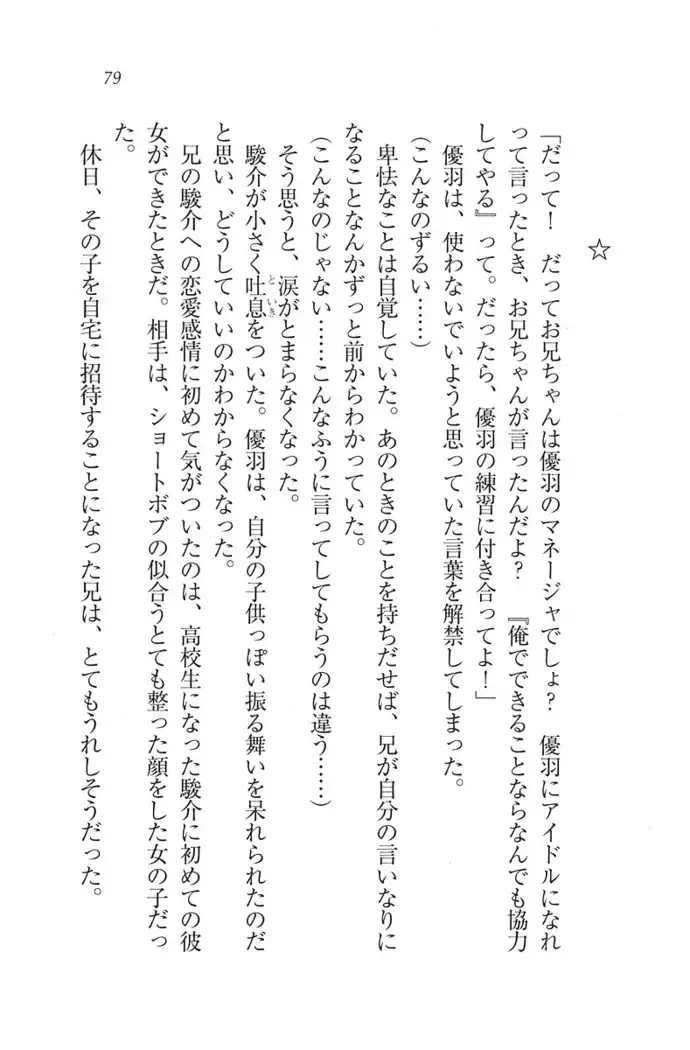 79
☆
「だって！　だってお兄ちゃんは優羽のマネージャでしょ？　優羽にアイドルになれ
って言ったとき、お兄ちゃんが言ったんだよ？　『俺でできることならなんでも協力
してやる』って。だったら、優羽の練習に付き合ってよ！」
優羽は、使わないでいようと思っていた言葉を解禁してしまった。
(こんなのずるい……)
卑怯なことは自覚していた。あのときのことを持ちだせば、兄が自分の言いなりに
なることなんかずっと前からわかっていた。
(こんなのじゃない……こんなふうに言ってしてもらうのは違う……)
そう思うと、涙がとまらなくなった。
駿介が小さく吐息をついた。優羽は、自分の子供っぽい振る舞いを呆れられたのだ
と思い、どうしていいのかわからなくなった。
兄の駿介への恋愛感情に初めて気がついたのは、高校生になった駿介に初めての彼
女ができたときだ。相手は、ショートボブの似合うとても整った顔をした女の子だっ
た。
休日、その子を自宅に招待することになった兄は、とてもうれしそうだった。